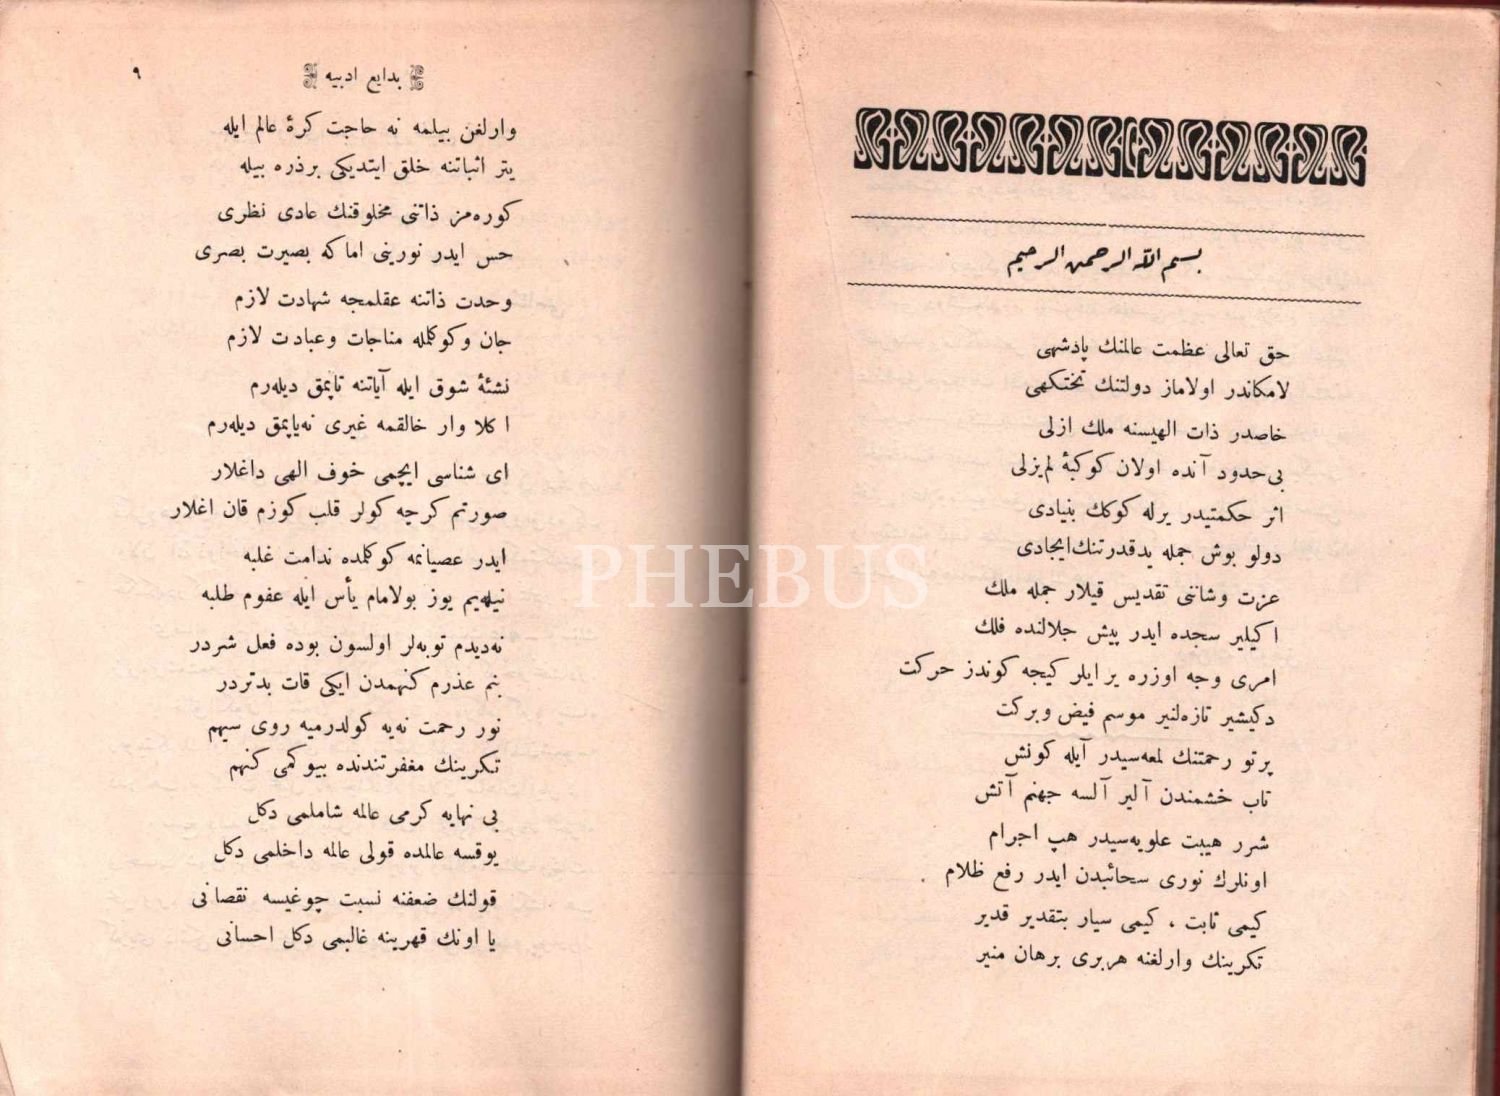 بسم الله الرحمن الرحيم
حق تعالی عظمت عالمنك پادشهی
لامكاندر اولاماز دولتنك تختكهی
خاصدر ذات الهيسنه ملك ازلی
بی‌حدود آنده اولان كوكبهٔ لم‌يزلی
اثر حكمتيدر يرله كوكك بنيادی
دولو بوش جمله يد قدرتنك ايجادی
عزت وشاننی تقديس قيلار جمله ملك
اكيلير سجده ايدر پيش جلالنده فلك
امری وجه اوزره ير ايلر كيجه كوندز حركت
دكيشير تازه‌لنير موسم فيض وبركت
پرتو رحمتنك لمعه‌سيدر آيله كونش
تاب خشمندن آلير آلسه جهنم آتش
شرر هيبت علويه‌سيدر هپ اجرام
اونلرك نوری سحائبدن ايدر رفع ظلام
كيمی ثابت ، كيمی سيار بتقدير قدير
تكرينك وارلغنه هربری برهان منير
بدايع ادبيه ٩
وارلغن بيلمه نه حاجت كرۀ عالم ايله
يتر اثباتنه خلق ايتديكی برذره بيله
كوره‌مز ذاتنی مخلوقنك عادی نظری
حس ايدر نورينی اما كه بصيرت بصری
وحدت ذاتنه عقلمجه شهادت لازم
جان وكوكلمله مناجات وعبادت لازم
نشئۀ شوق ايله آياتنه تاپمق ديله‌رم
اكلا وار خالقمه غيری نه‌ياپمق ديله‌رم
ای شناسی ايچمی خوف الهی داغلار
صورتم كرچه كولر قلب كوزم قان اغلار
ايدر عصيانمه كوكلمده ندامت غلبه
نيله‌يم يوز بولامام يأس ايله عفوم طلبه
نه‌ديدم توبه‌لر اولسون بوده فعل شردر
بنم عذرم كنهمدن ايكی قات بدتردر
نور رحمت نه‌يه كولدرميه روی سيهم
تكرينك مغفرتندنده بيوكمی كنهم
بی نهايه كرمی عالمه شاملمی دكل
يوقسه عالمده قولی عالمه داخلمی دكل
قولنك ضعفنه نسبت چوغيسه نقصانی
يا اونك قهرينه غالبمی دكل احسانی
PHEBUS